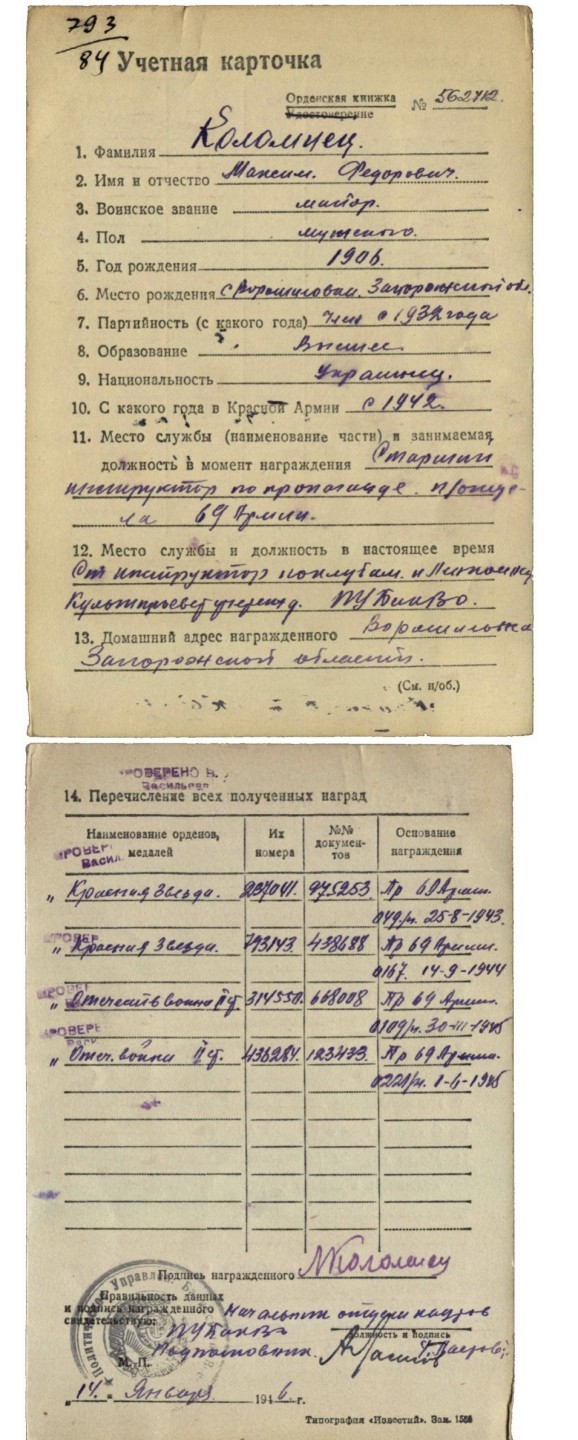 793
84 Учетная карточка
Орденская книжка № 562712.
Удостоверение
1. Фамилия Коломиец.
2. Имя и отчество Максим. Федорович.
3. Воинское звание майор.
4. Пол мужского.
5. Год рождения 1906.
6. Место рождения с Ворошиловка. Запорожской обл.
7. Партийность (с какого года) Член с 1932 года
8. Образование Высшее
9. Национальность Украинец.
10. С какого года в Красной Армии с 1942.
11. Место службы (наименование части) и занимаемая
должность в момент награждения Старший
инструктор по пропаганде. п/отде-
ла 69 Армии.
12. Место службы и должность в настоящее время
Ст инструктор по клубам. и
ПУБакВО.
13. Домашний адрес награжденного Ворошиловка
Запорожской области.
(См. н/об.)
ПРОВЕРЕНО В.
Васильев
14. Перечисление всех полученных наград
Наименование орденов, медалей Их номера №№ документов Основание награждения
" Красная Звезда. 237041. 975253. Пр 69 Армии.
049/н. 25-8-1943.
" Красная Звезда. 793143. 438688 Пр 69 Армии.
0167. 14-9-1944
" Отечеств война II ст. 314550. 668008 Пр 69 Армии.
0109/н. 30-III-1945
" Отеч. войны II ст. 436284. 123433. Пр 69 Армии.
0221/н. 1-6-1945
Подпись награжденного МКоломиец
Правильность данных
и подпись награжденного
свидетельствую: Начальник отдела кадров
ПУБакВО
должность и подпись
Подполковник
М. П.
"14" Января 1946 г.
Типография «Известий». Зак. 1586